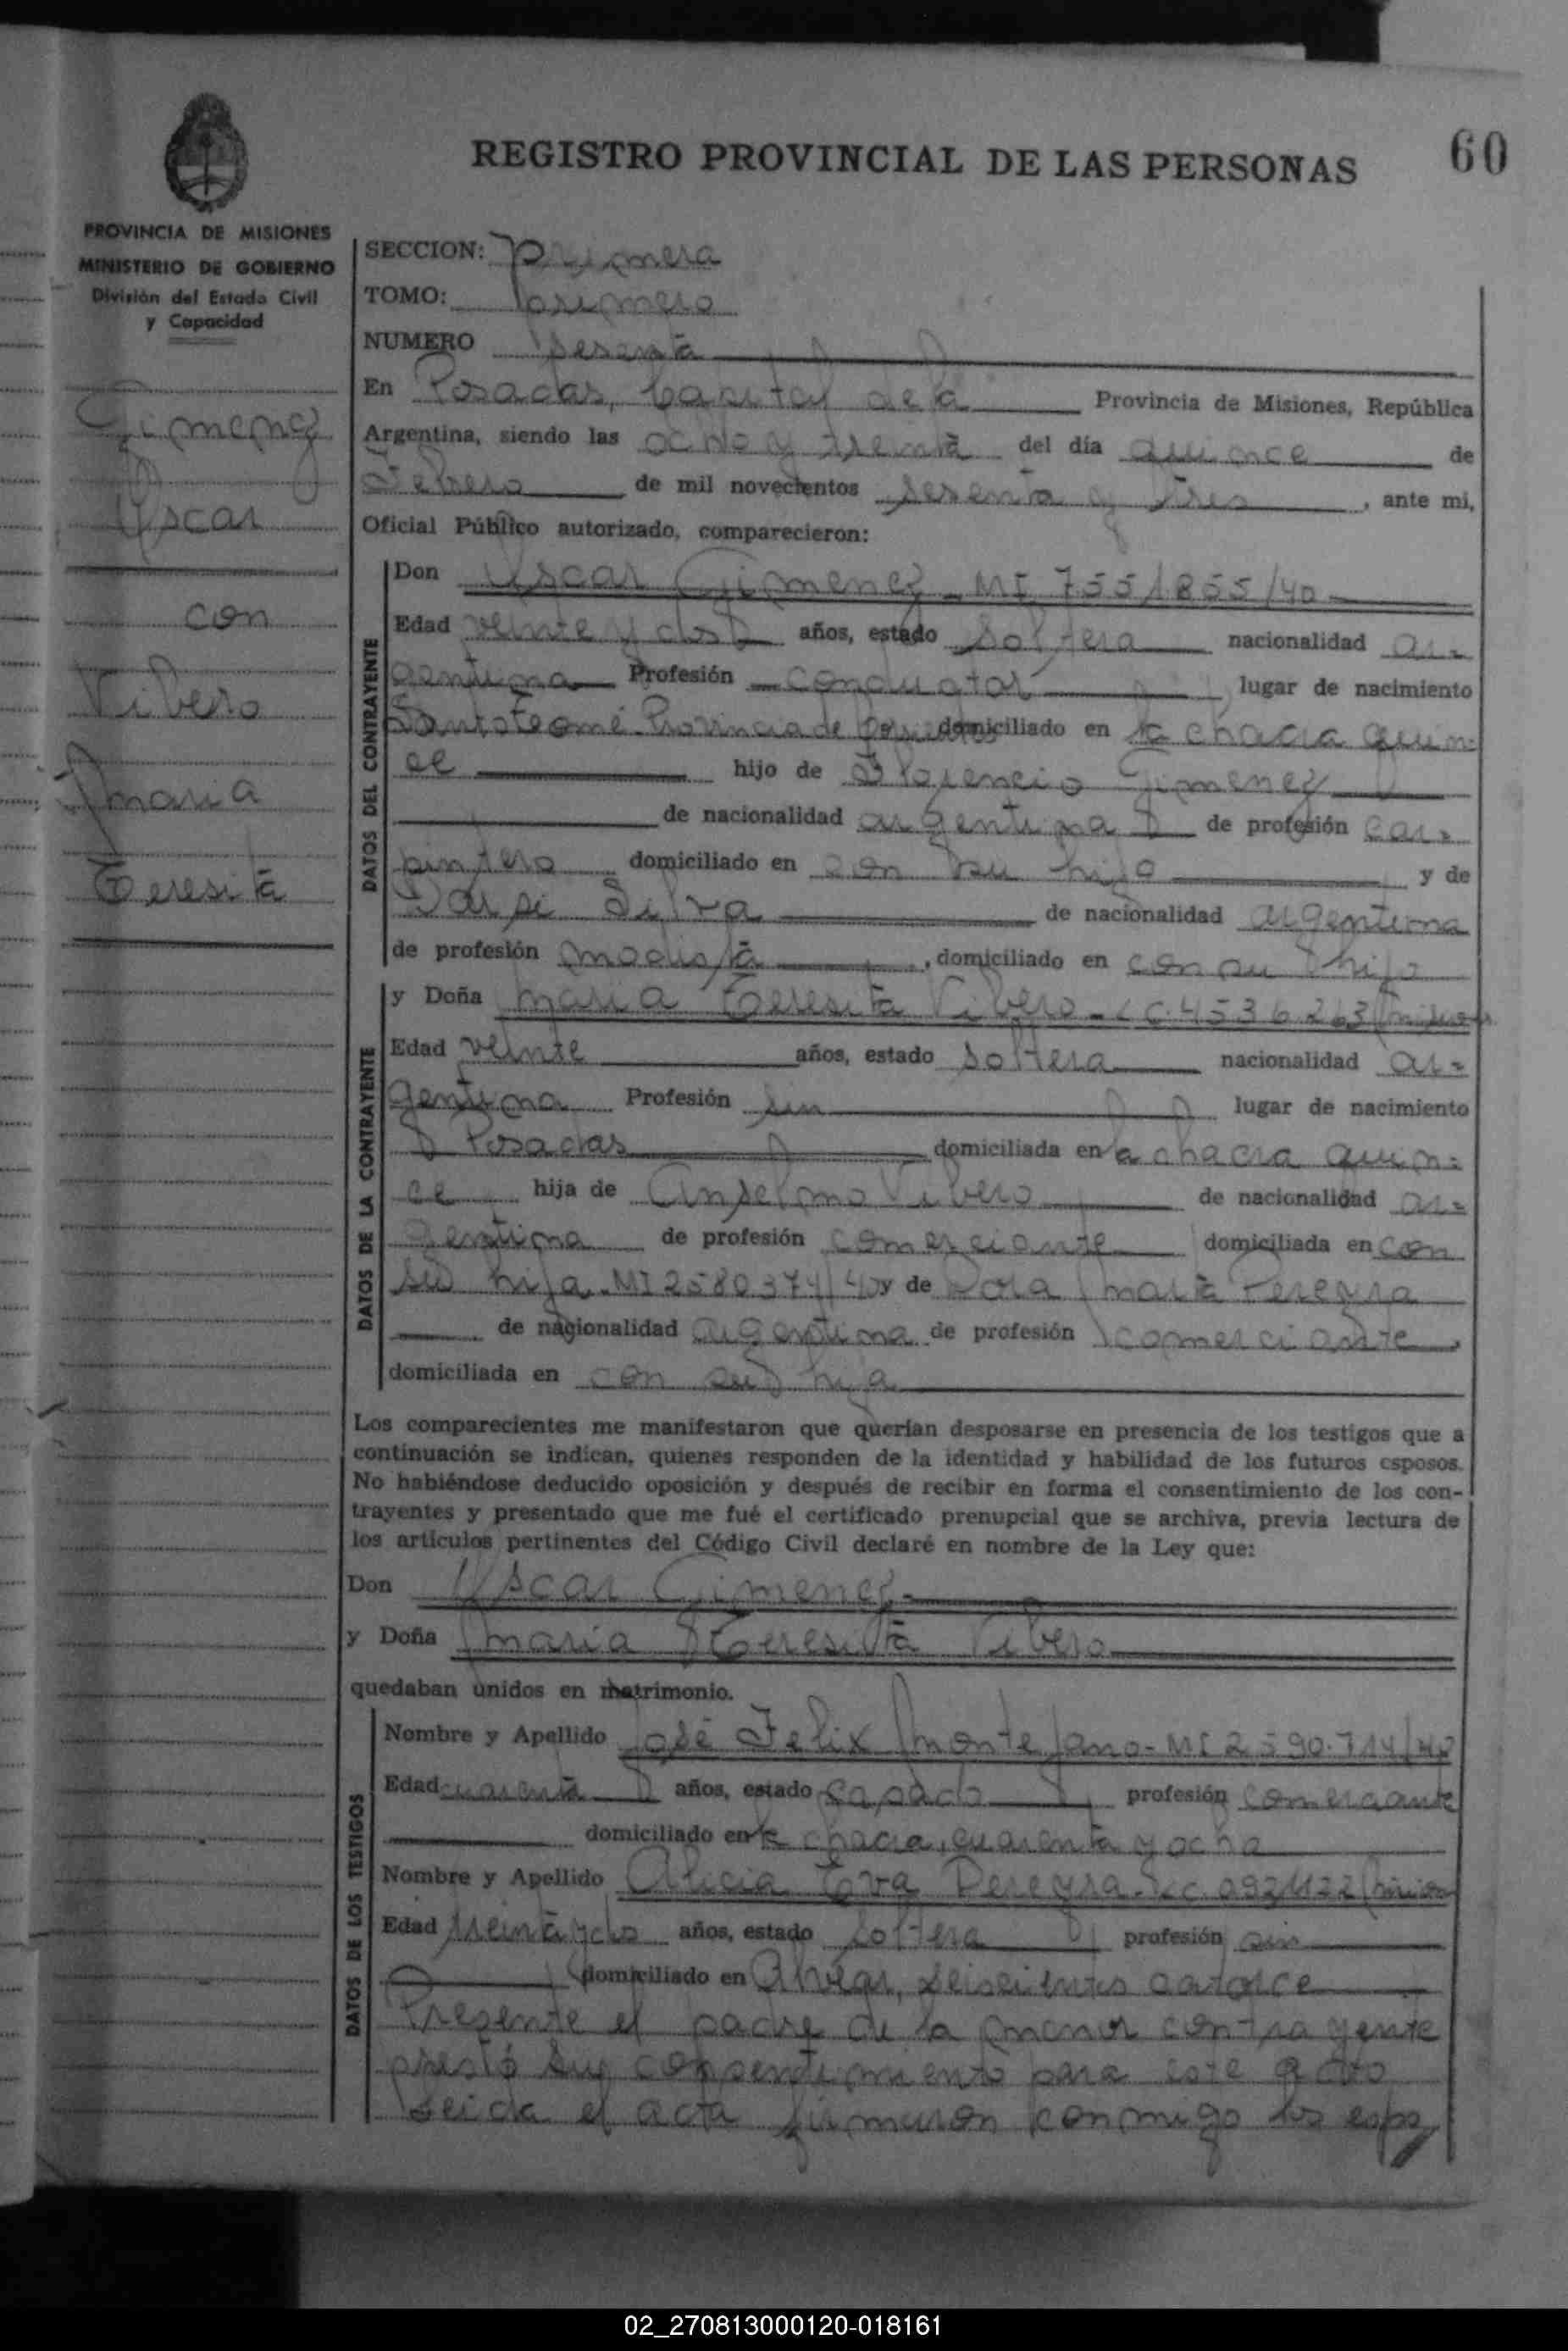 REGISTRO PROVINCIAL DE LAS PERSONAS
60
PROVINCIA DE MISIONES
MINISTERIO DE GOBIERNO
División del Estado Civil
y Capacidad
Gimenez
Oscar
con
Vibero
Maria
Teresita
SECCION: Primera
TOMO: Primero
NUMERO Sesenta
En Posadas, Capital de la Provincia de Misiones, República
Argentina, siendo las ocho y treinta del día quince de
Febrero de mil novecientos sesenta y tres, ante mi,
Oficial Público autorizado, comparecieron:
DATOS DEL CONTRAYENTE
Don Oscar Gimenez - MI 7551855/40
Edad veinte y dos años, estado soltero nacionalidad ar-
gentina Profesión conductor, lugar de nacimiento
Santo Tomé - Provincia de domiciliado en la chacra quin-
ce hijo de Florencio Gimenez
de nacionalidad argentina de profesión car-
pintero domiciliado en con su hijo y de
Silva de nacionalidad argentina
de profesión modista, domiciliado en con su hijo
DATOS DE LA CONTRAYENTE
y Doña Maria Teresita Vibero - LC. 4536263
Edad veinte años, estado soltera nacionalidad ar-
gentina Profesión sin lugar de nacimiento
Posadas domiciliada en la chacra quin-
ce hija de Anselmo Vibero de nacionalidad ar-
gentina de profesión comerciante domiciliada en con
su hija - MI 2580374/40 y de Dora Maria Pereyra
de nacionalidad argentina de profesión comerciante,
domiciliada en con su hija
Los comparecientes me manifestaron que querían desposarse en presencia de los testigos que a
continuación se indican, quienes responden de la identidad y habilidad de los futuros esposos.
No habiéndose deducido oposición y después de recibir en forma el consentimiento de los con-
trayentes y presentado que me fué el certificado prenupcial que se archiva, previa lectura de
los artículos pertinentes del Código Civil declaré en nombre de la Ley que:
Don Oscar Gimenez
y Doña Maria Teresita Vibero
quedaban unidos en matrimonio.
DATOS DE LOS TESTIGOS
Nombre y Apellido José Felix Montejano - MI 2590.714/40
Edad cuarenta años, estado casado profesión comerciante
domiciliado en la chacra, cuarenta y ocho
Nombre y Apellido Alicia Eva Pereyra - LC.
Edad treinta y dos años, estado soltera profesión sin
domiciliado en Alvear, seiscientos catorce
Presente el padre de la menor contrayente
prestó su consentimiento para este acto
Leida el acta firmaron conmigo los espo
02_270813000120-018161